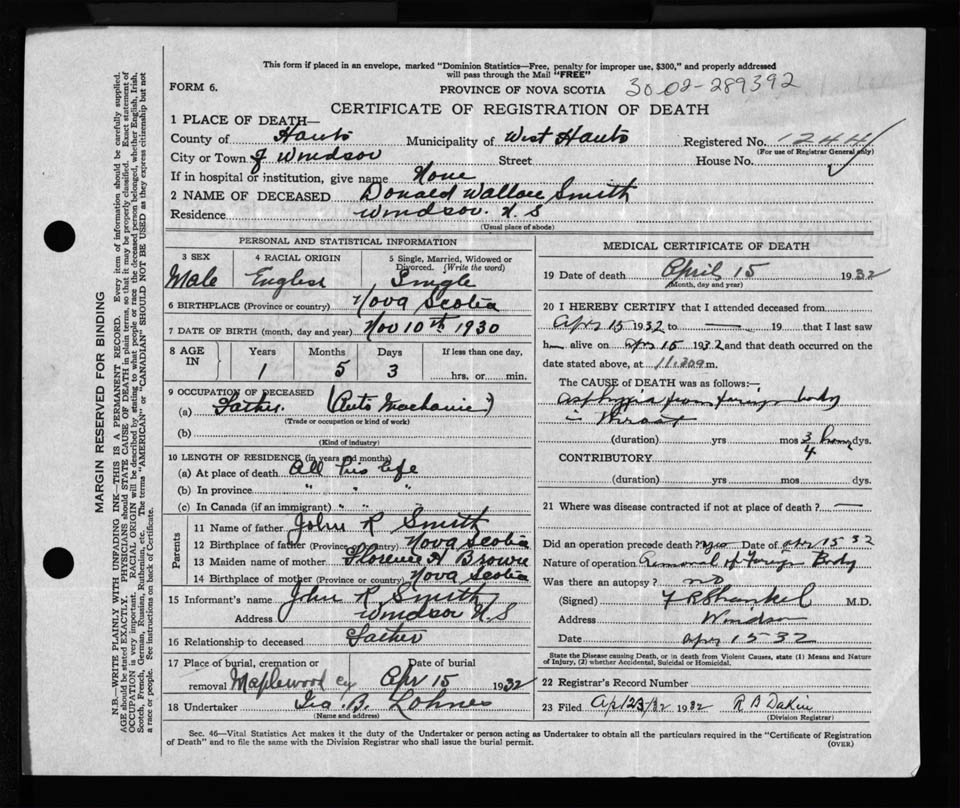 This form if placed in an envelope, marked "Dominion Statistics—Free, penalty for improper use, $300," and properly addressed
will pass through the Mail "FREE"
FORM 6.
PROVINCE OF NOVA SCOTIA
30-02-289392
CERTIFICATE OF REGISTRATION OF DEATH
1 PLACE OF DEATH—
County of Hants Municipality of West Hants Registered No. 1244
(For use of Registrar General only)
City or Town of Windsor Street House No.
If in hospital or institution, give name None
2 NAME OF DECEASED Donald Wallace Smith
Residence Windsor. N.S
(Usual place of abode)
PERSONAL AND STATISTICAL INFORMATION
3 SEX 4 RACIAL ORIGIN 5 Single, Married, Widowed or
Divorced. (Write the word)
Male English Single
6 BIRTHPLACE (Province or country) Nova Scotia
7 DATE OF BIRTH (month, day and year) Nov 10th 1930
8 AGE IN Years Months Days If less than one day,
1 5 3 hrs. or min.
9 OCCUPATION OF DECEASED
(a) Father. (Auto Mechanic)
(Trade or occupation or kind of work)
(b)
(Kind of industry)
10 LENGTH OF RESIDENCE (in years and months)
(a) At place of death All his life
(b) In province " " " "
(c) In Canada (if an immigrant) " "
Parents
11 Name of father John R Smith
12 Birthplace of father (Province or country) Nova Scotia
13 Maiden name of mother Florence A Brown
14 Birthplace of mother (Province or country) Nova Scotia
15 Informant's name John R Smith
Address Windsor N.S
16 Relationship to deceased Father
17 Place of burial, cremation or Date of burial
removal Maplewood Cy Apr 15 1932
18 Undertaker Geo. B. Lohnes
(Name and address)
MEDICAL CERTIFICATE OF DEATH
19 Date of death April 15 1932
(Month, day and year)
20 I HEREBY CERTIFY that I attended deceased from
Apr 15 1932 to — 19 that I last saw
h alive on apr 15 1932 and that death occurred on the
date stated above, at 11.30 m.
The CAUSE of DEATH was as follows:—
Asphyxia from foreign body
in throat
(duration) yrs mos 3/4 hour dys.
CONTRIBUTORY
(duration) yrs mos dys.
21 Where was disease contracted if not at place of death? —
Did an operation precede death? yes Date of apr 15 32
Nature of operation Removal of Foreign Body
Was there an autopsy? no
(Signed) M.D.
Address Windsor
Date apr 15 32
State the Disease causing Death, or in death from Violent Causes, state (1) Means and Nature
of Injury, (2) whether Accidental, Suicidal or Homicidal.
22 Registrar's Record Number
23 Filed Apl 23/32 1932 R B Dakin
(Division Registrar)
Sec. 46—Vital Statistics Act makes it the duty of the Undertaker or person acting as Undertaker to obtain all the particulars required in the "Certificate of Registration
of Death" and to file the same with the Division Registrar who shall issue the burial permit.
(OVER)
MARGIN RESERVED FOR BINDING
N.B.—WRITE PLAINLY WITH UNFADING INK—THIS IS A PERMANENT RECORD. Every item of information should be carefully supplied.
AGE should be stated EXACTLY. PHYSICIANS should STATE CAUSE OF DEATH in plain terms, so that it may be properly classified. Exact statement of
OCCUPATION is very important. RACIAL ORIGIN will be described by stating to what people or race the deceased person belonged, whether English, Irish,
Scotch, French, German, Russian, Ruthenian, etc. The terms "AMERICAN" or "CANADIAN" SHOULD NOT BE USED as they express citizenship but not
a race or people. See instructions on back of Certificate.